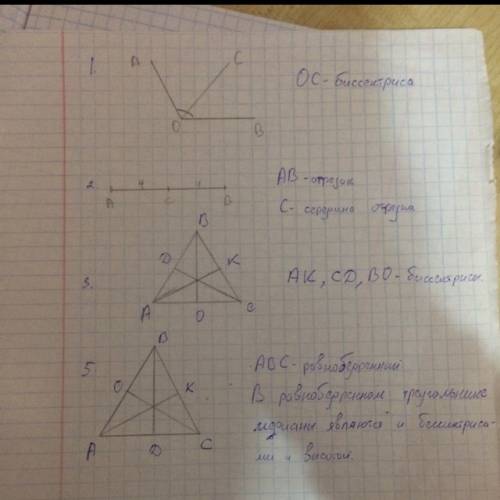 1.
B C
O B
OC - биссектриса
2.
4 4
A C B
AB - отрезок
C - середина отрезка
B
D K
3.
A O C
AK, CD, BO - биссектрисы.
B
5.
O K
A D C
ABC - равнобедренный
В равнобедренном треугольнике
медианы являются и биссектриса-
ми и высотой.